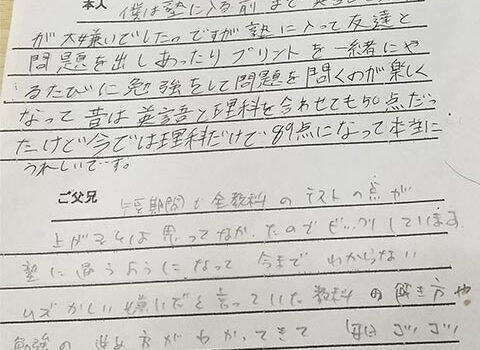 本人 僕は塾に入る前まで
が大嫌いでした。ですが塾に入って友達と
問題を出しあったりプリントを一緒にや
るたびに勉強をして問題を問くのが楽しく
なって昔は英語と理科を合わせても50点だっ
たけど今では理科だけで89点になって本当に
うれしいです。
ご父兄 短期間で全教科のテストの点が
上がるとは思ってなかったのでビックリしています
塾に通うようになって今までわからない
ムズかしい嫌いだと言っていた教科の解き方や
勉強の進め方がわかってきて毎日コツコツ